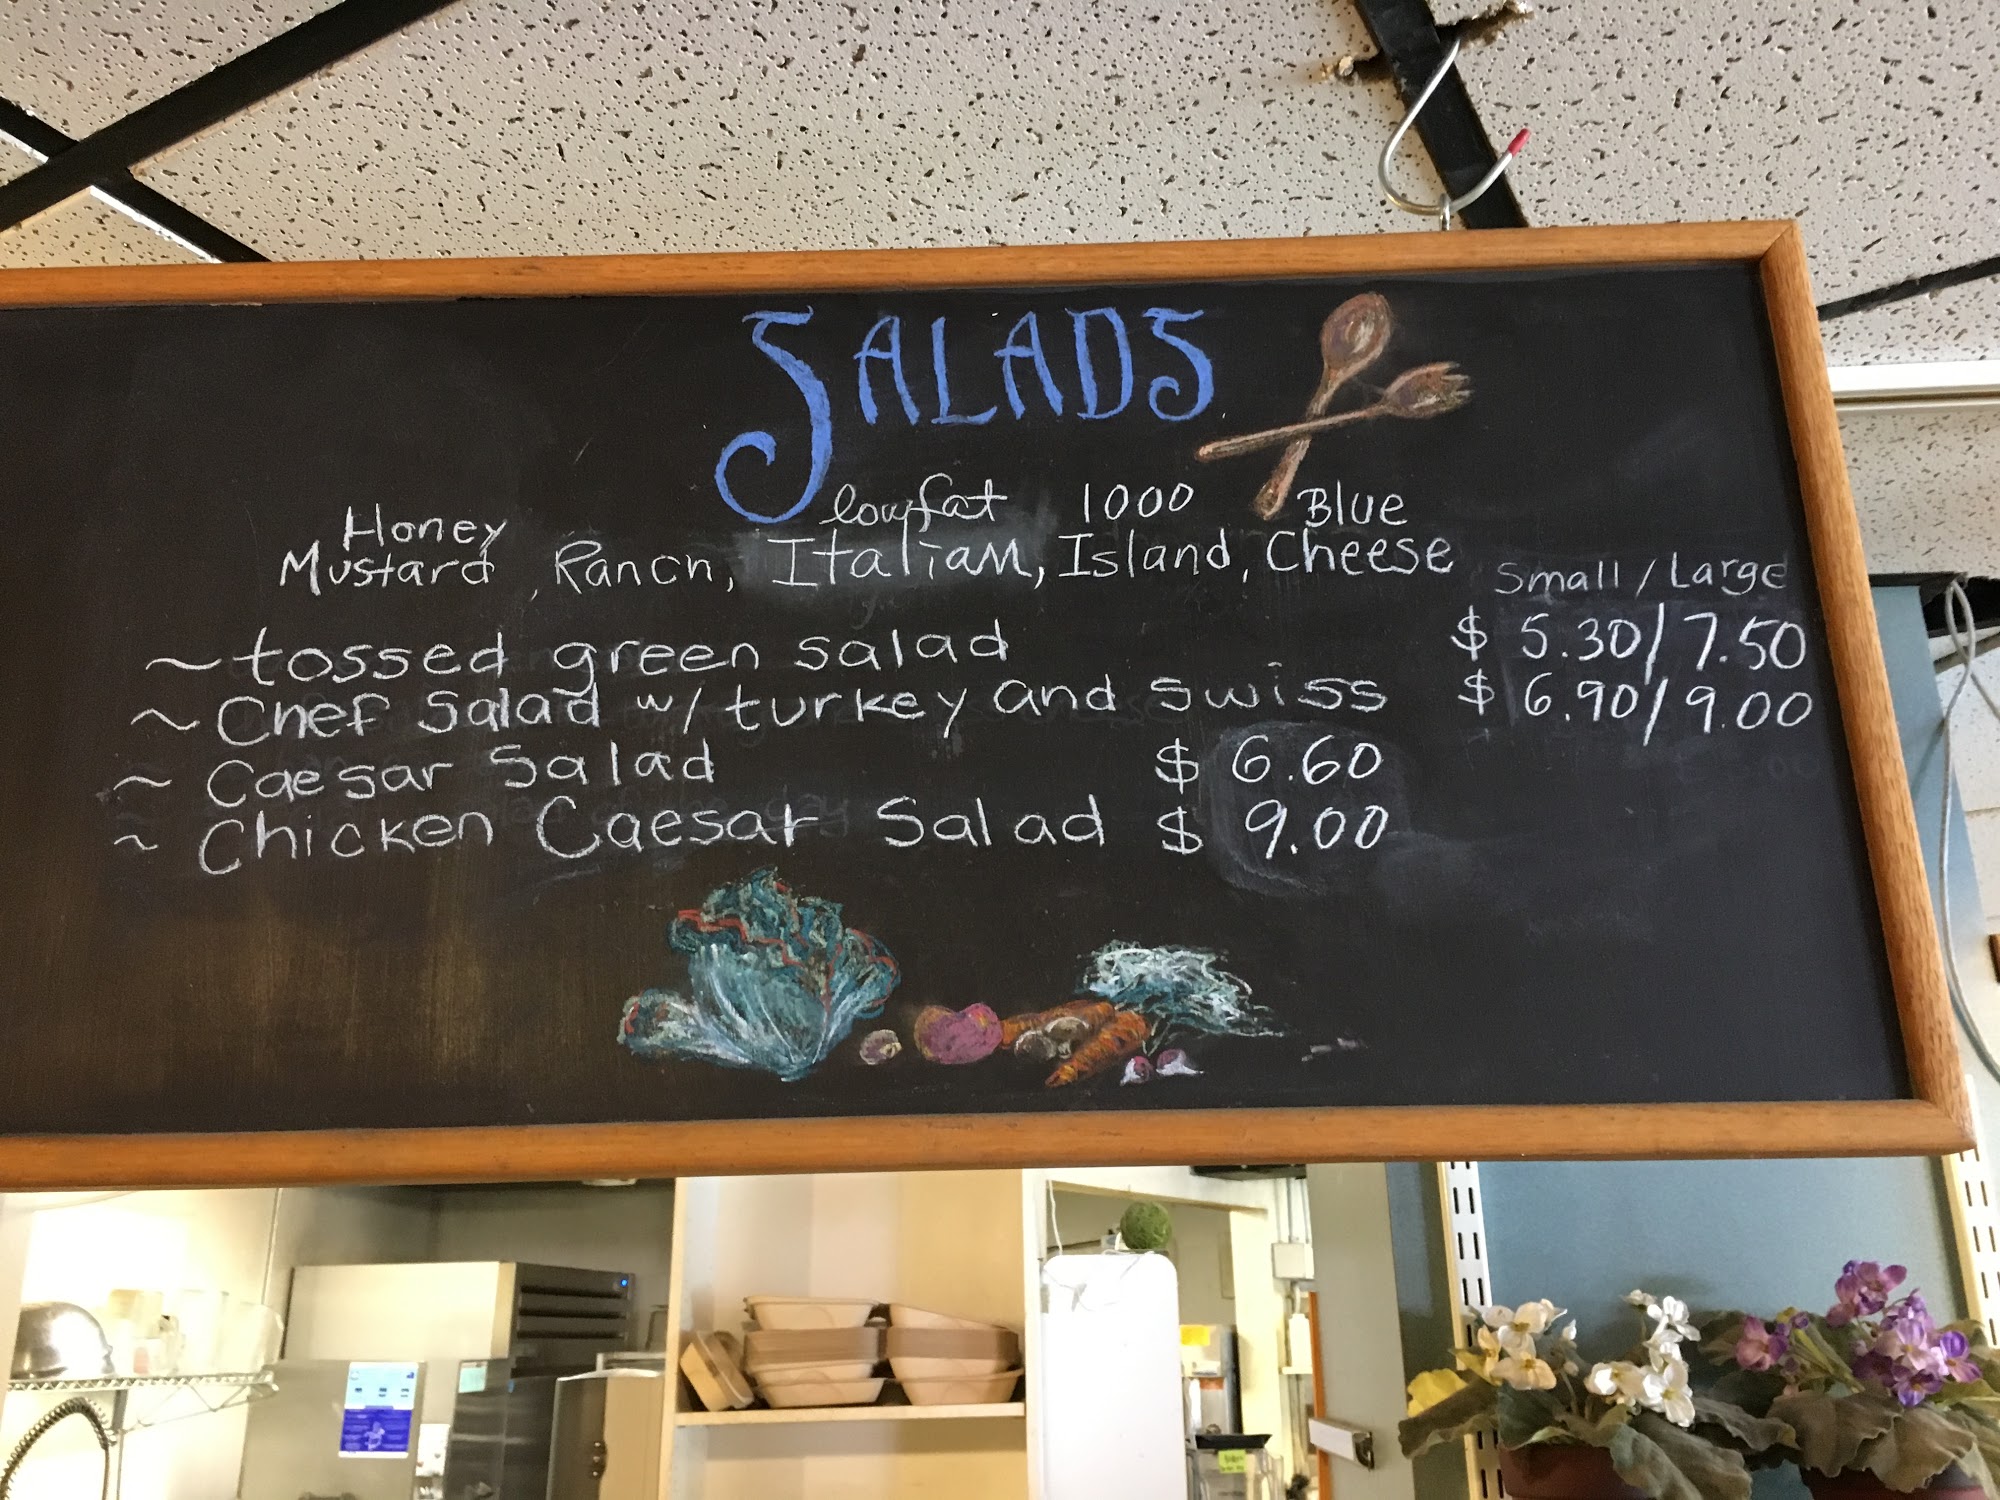 SALADS
Honey lowfat 1000 Blue
Mustard, Ranch, Italian, Island, Cheese
Small / Large
~ tossed green salad $ 5.30/7.50
~ Chef Salad w/ turkey and swiss $ 6.90/9.00
~ Caesar Salad $ 6.60
~ Chicken Caesar Salad $ 9.00